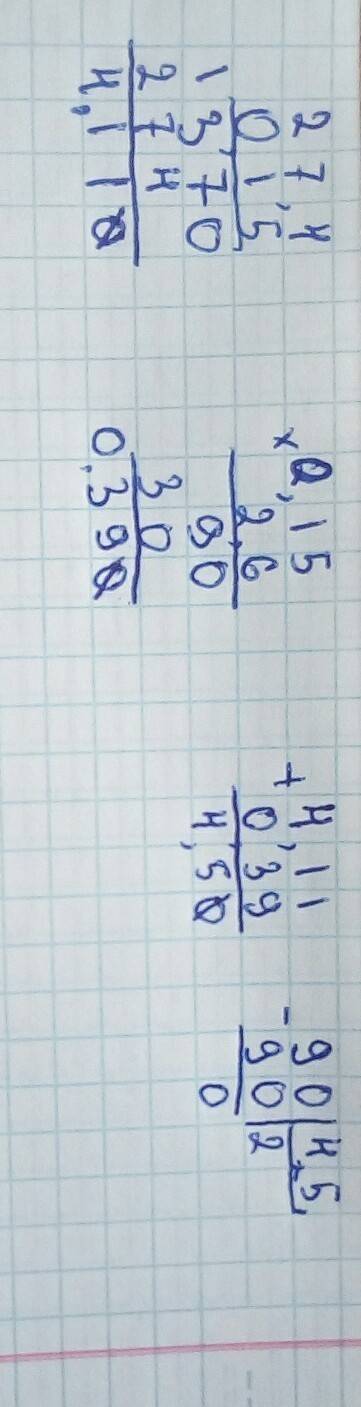 27,4
0,15
1370
274
4,110
× 0,15
2,6
90
30
0,390
+ 4,11
0,39
4,50
- 90 | 4,5
90 | 2
0